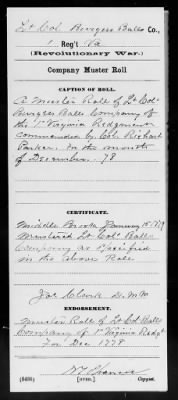 Lt Col. Burgess Balls Co.,
1 Reg't Va
(Revolutionary War.)
Company Muster Roll
CAPTION OF ROLL.
A Muster Roll of Lt Col.
Burgess Balls Company of
the 1st Virginia Regiment
commanded by Col. Richard
Parker. for the month
of December - 78
CERTIFICATE.
Middle Brook January 1779
Mustered Lt Col. Balls
Company as Specified
in the above Role
Jos. Clark D. M. M
ENDORSEMENT.
Muster Roll of Lt Col Balls
Company of 1st Virginia Regt
For Dec 1778
Copyist.